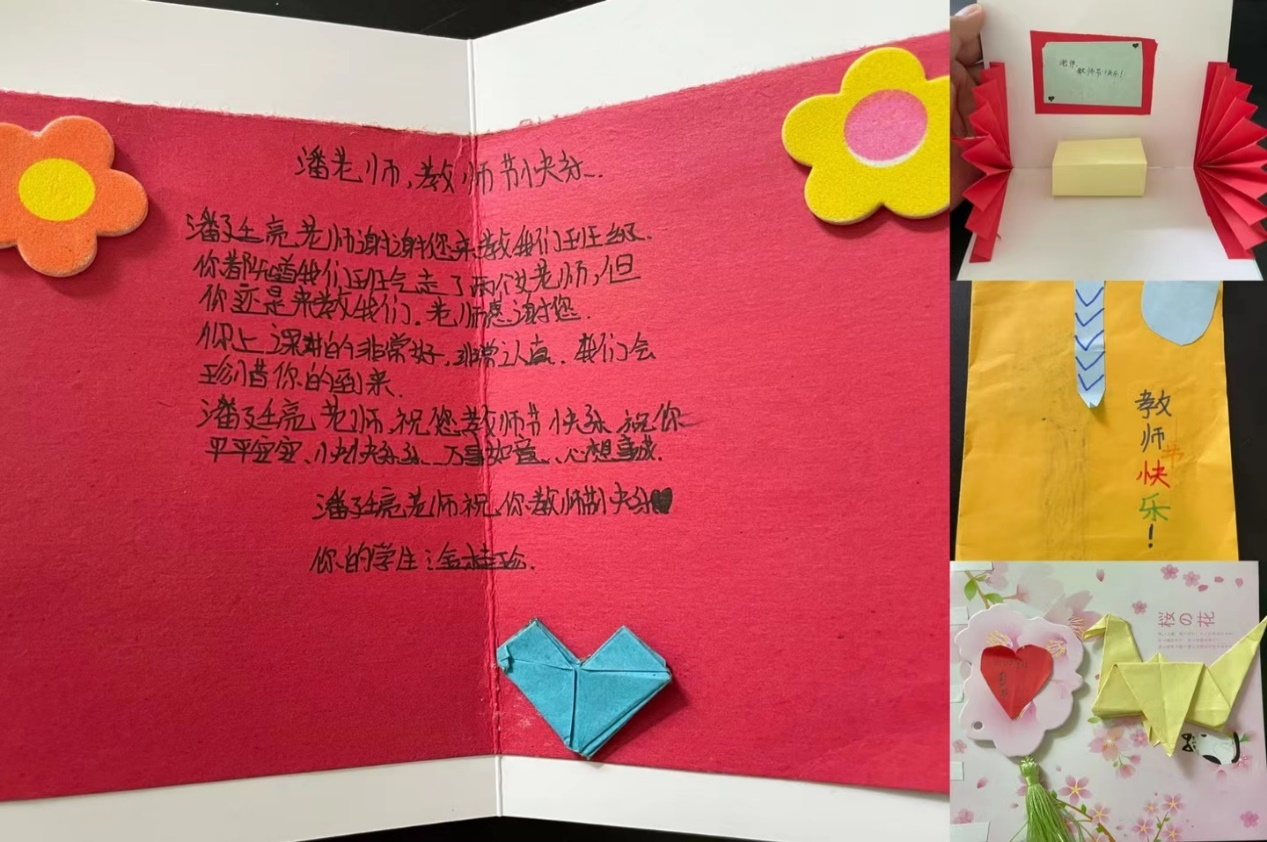 潘老师,教师节快乐.
潘廷亮老师谢谢您来教我们班班级.
你都知道我们班气走了两个女老师,但
你还是来教我们.老师感谢您.
你上课讲的非常好,非常认真.我们会
珍惜你的到来.
潘廷亮老师,祝您教师节快乐 祝你
平平安安、快快乐乐、万事如意、心想事成.
潘廷亮老师祝你教师节快乐♥
你的学生:金桂珍.
老师,
教师节快乐!
教师节快乐!
桜の花